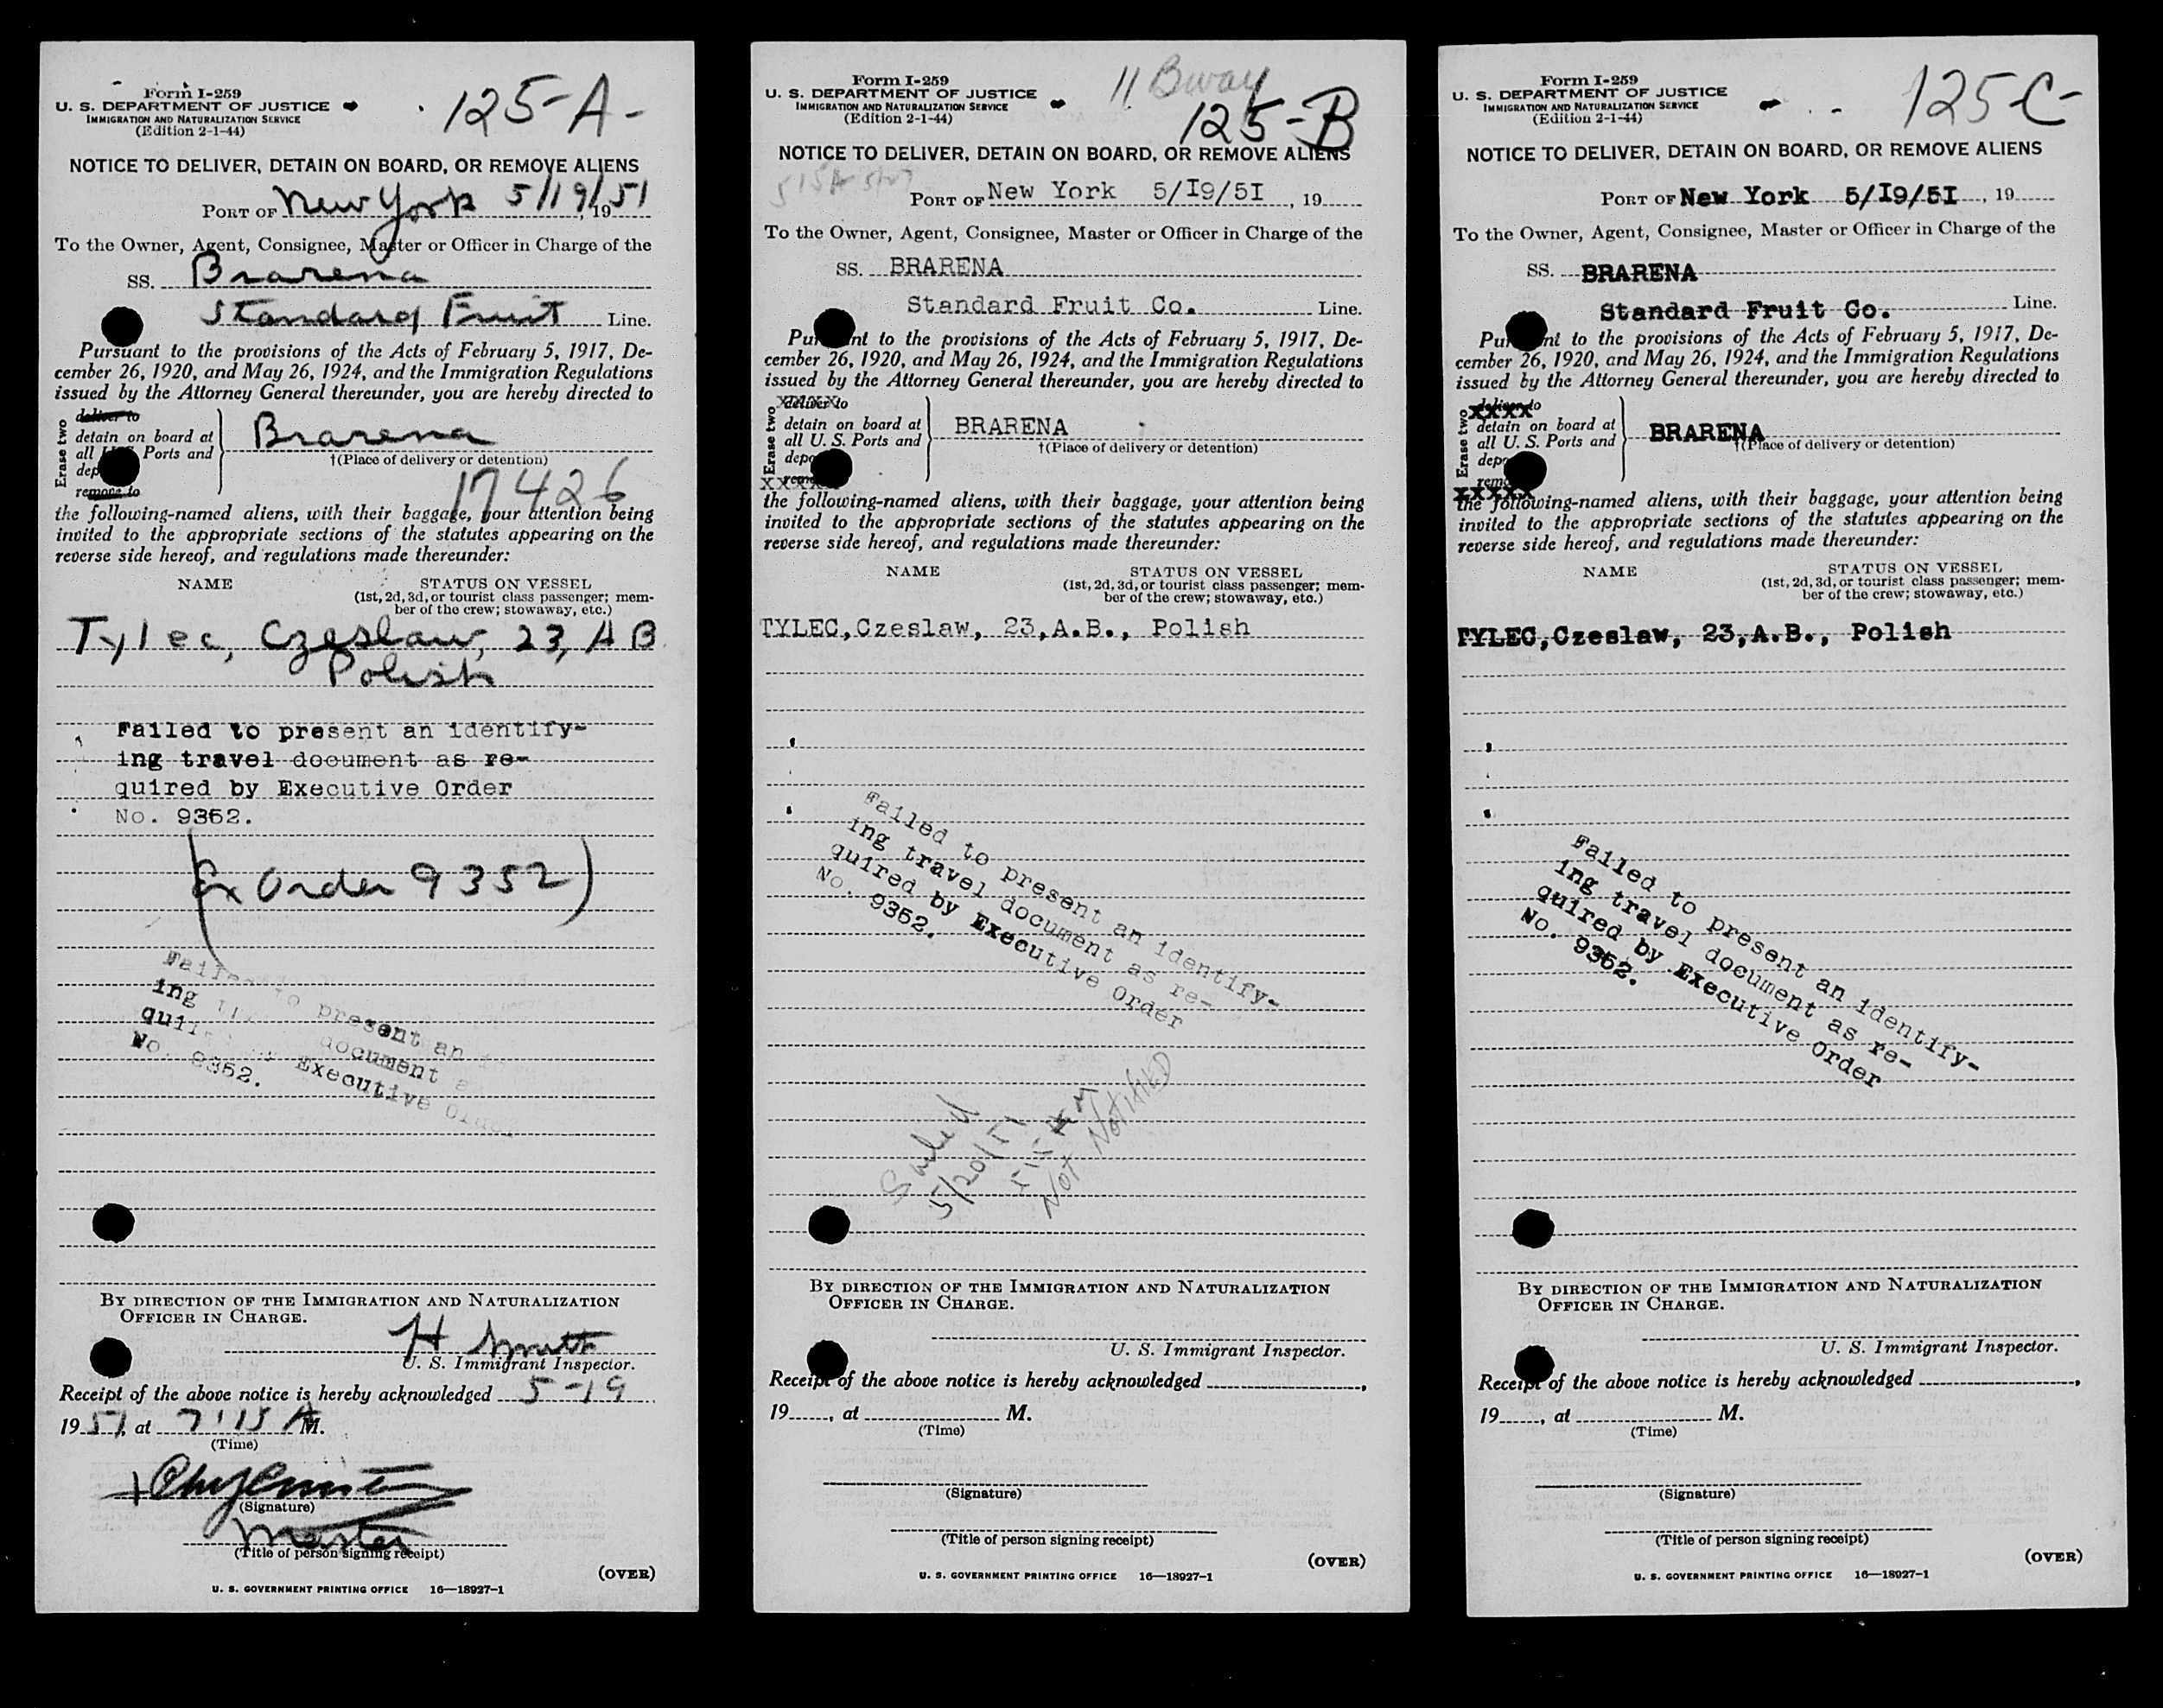 Form I-259
U. S. DEPARTMENT OF JUSTICE
IMMIGRATION AND NATURALIZATION SERVICE
(Edition 2-1-44)
125-A-
NOTICE TO DELIVER, DETAIN ON BOARD, OR REMOVE ALIENS
PORT OF New York 5/19/1951
To the Owner, Agent, Consignee, Master or Officer in Charge of the
SS. Brarena
Standard Fruit Line.
Pursuant to the provisions of the Acts of February 5, 1917, De-
cember 26, 1920, and May 26, 1924, and the Immigration Regulations
issued by the Attorney General thereunder, you are hereby directed to
Erase two
deliver to
detain on board at
all U.S. Ports and
dep
remove to
Brarena
†(Place of delivery or detention)
17426
the following-named aliens, with their baggage, your attention being
invited to the appropriate sections of the statutes appearing on the
reverse side hereof, and regulations made thereunder:
NAME STATUS ON VESSEL
(1st, 2d, 3d, or tourist class passenger; mem-
ber of the crew; stowaway, etc.)
Tylec, Czeslaw, 23, A B
Polish
Failed to present an identify-
ing travel document as re-
quired by Executive Order
No. 9352.
(Ex Order 9352)
Failed to present an
ing document
qui Executive Order
No. 9352.
BY DIRECTION OF THE IMMIGRATION AND NATURALIZATION
OFFICER IN CHARGE.
H Smith
U. S. Immigrant Inspector.
Receipt of the above notice is hereby acknowledged 5-19
1951, at 7:15 A M.
(Time)
(Signature)
Master
(Title of person signing receipt)
(OVER)
U. S. GOVERNMENT PRINTING OFFICE 16—18927-1
Form I-259
U. S. DEPARTMENT OF JUSTICE
IMMIGRATION AND NATURALIZATION SERVICE
(Edition 2-1-44)
11 Bway
125-B
NOTICE TO DELIVER, DETAIN ON BOARD, OR REMOVE ALIENS
PORT OF New York 5/I9/5I, 19
To the Owner, Agent, Consignee, Master or Officer in Charge of the
SS. BRARENA
Standard Fruit Co. Line.
Pur nt to the provisions of the Acts of February 5, 1917, De-
cember 26, 1920, and May 26, 1924, and the Immigration Regulations
issued by the Attorney General thereunder, you are hereby directed to
Erase two
XXXXX
deliver to
detain on board at
all U. S. Ports and
depo
remo
XXXXX
BRARENA
†(Place of delivery or detention)
the following-named aliens, with their baggage, your attention being
invited to the appropriate sections of the statutes appearing on the
reverse side hereof, and regulations made thereunder:
NAME STATUS ON VESSEL
(1st, 2d, 3d, or tourist class passenger; mem-
ber of the crew; stowaway, etc.)
TYLEC,Czeslaw, 23,A.B., Polish
Failed to present an identify-
ing travel document as re-
quired by Executive Order
No. 9352.
Sailed
5/20/51
NOT NOTIFIED
BY DIRECTION OF THE IMMIGRATION AND NATURALIZATION
OFFICER IN CHARGE.
U. S. Immigrant Inspector.
Receipt of the above notice is hereby acknowledged ,
19 , at M.
(Time)
(Signature)
(Title of person signing receipt)
(OVER)
U. S. GOVERNMENT PRINTING OFFICE 16—18927-1
Form I-259
U. S. DEPARTMENT OF JUSTICE
IMMIGRATION AND NATURALIZATION SERVICE
(Edition 2-1-44)
125-C-
NOTICE TO DELIVER, DETAIN ON BOARD, OR REMOVE ALIENS
PORT OF New York 5/I9/5I, 19
To the Owner, Agent, Consignee, Master or Officer in Charge of the
SS. BRARENA
Standard Fruit Co. Line.
Pur nt to the provisions of the Acts of February 5, 1917, De-
cember 26, 1920, and May 26, 1924, and the Immigration Regulations
issued by the Attorney General thereunder, you are hereby directed to
Erase two
deliver to
XXXX
detain on board at
all U. S. Ports and
depo
remo
XXXXX
BRARENA
†(Place of delivery or detention)
the following-named aliens, with their baggage, your attention being
invited to the appropriate sections of the statutes appearing on the
reverse side hereof, and regulations made thereunder:
NAME STATUS ON VESSEL
(1st, 2d, 3d, or tourist class passenger; mem-
ber of the crew; stowaway, etc.)
TYLEC,Czeslaw, 23,A.B., Polish
Failed to present an identify-
ing travel document as re-
quired by Executive Order
No. 9352.
BY DIRECTION OF THE IMMIGRATION AND NATURALIZATION
OFFICER IN CHARGE.
U. S. Immigrant Inspector.
Receipt of the above notice is hereby acknowledged ,
19 , at M.
(Time)
(Signature)
(Title of person signing receipt)
(OVER)
U. S. GOVERNMENT PRINTING OFFICE 16—18927-1